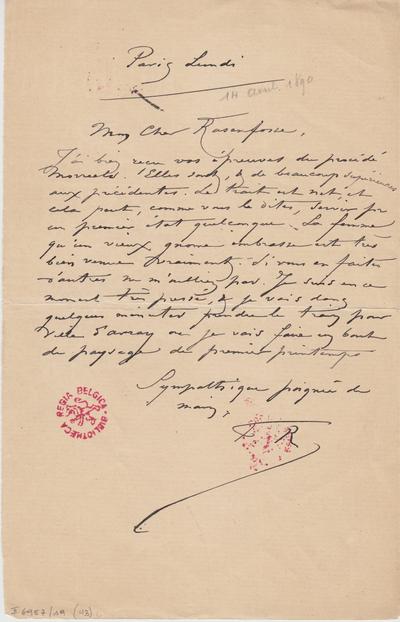 Paris Lundi
14 avril 1890
Mon Cher Rassenfosse,
J'ai bien reçu vos épreuves du procédé
Elles sont, & de beaucoup supérieures
aux précédentes. Le trait est net et
cela peut, comme vous le dites, servir pr
un premier état quelconque. La femme
qu'un vieux gnome embrasse est très
bien venue vraiment. Si vous en faites
d'autres ne m'oubliez pas. Je suis en ce
moment très pressé, & je vais dans
quelques minutes prendre le train pour
Ville d'avray où je vais faire un bout
de paysage de premier printemps
Sympathique poignée de
main,
R
REGIA BELGICA BIBLIOTHECA
II 6957/19 (43)